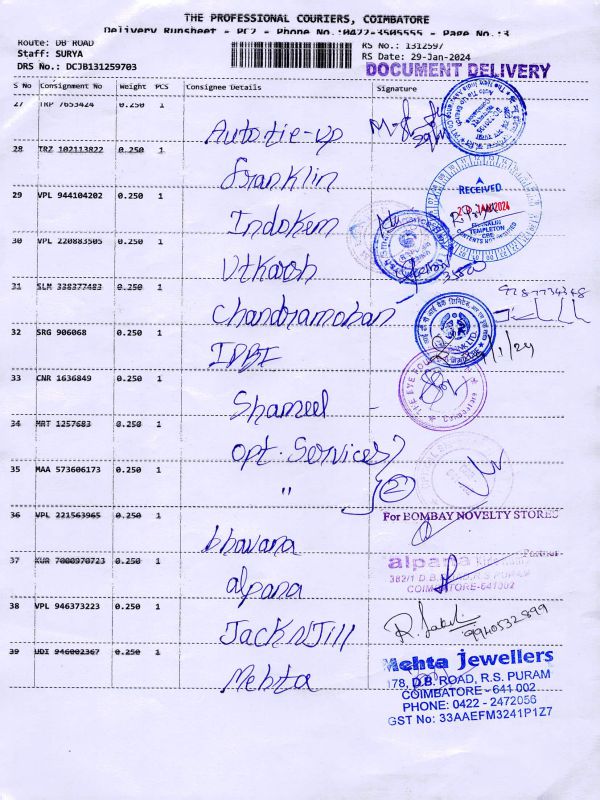 THE PROFESSIONAL COURIERS, COIMBATORE
Delivery Runsheet - PC2 - Phone No.:0422-3505555 - Page No.:3
Route: DB ROAD
Staff: SURYA
DRS No.: DCJB131259703
RS No.: 1312597
RS Date: 29-Jan-2024
DOCUMENT DELIVERY
S No Consignment No Weight PCS Consignee Details Signature
27 TRP 7653424 0.250 1
Autotie-up
28 TRZ 102113822 0.250 1
Franklin
RECEIVED
JAN 2024
FRANKLIN
TEMPLETON
CBE
CONTENTS NOT VERIFIED
29 VPL 944104202 0.250 1
Indokem
30 VPL 220883505 0.250 1
Utkarsh
31 SLM 338377483 0.250 1
Chandramohan
32 SRG 906068 0.250 1
IDBI
33 CNR 1636849 0.250 1
Shameel
34 MRT 1257683 0.250 1
Opt. Services
35 MAA 573606173 0.250 1
" 2
36 VPL 221563965 0.250 1
For BOMBAY NOVELTY STORES
Partner
bhavana
37 KUR 7000970723 0.250 1
alpana
alpana
COIMBATORE-641002
38 VPL 946373223 0.250 1
Jack n Jill
9940532899
39 UDI 946002367 0.250 1
Mehta
Mehta Jewellers
178, D.B. ROAD, R.S. PURAM
COIMBATORE - 641 002
PHONE: 0422 - 2472056
GST No: 33AAEFM3241P1Z7